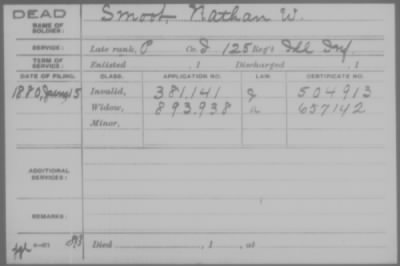 DEAD
NAME OF SOLDIER: Smoot, Nathan W.
SERVICE: Late rank, P Co. I 125 Reg't Ill Inf.
TERM OF SERVICE: Enlisted , 1 Discharged , 1
DATE OF FILING. CLASS. APPLICATION NO. LAW. CERTIFICATE NO.
1880, 15 Invalid, 381,141 504913
Widow, 893.938 657142
Minor,
ADDITIONAL SERVICES:
REMARKS:
Died , 1 , at